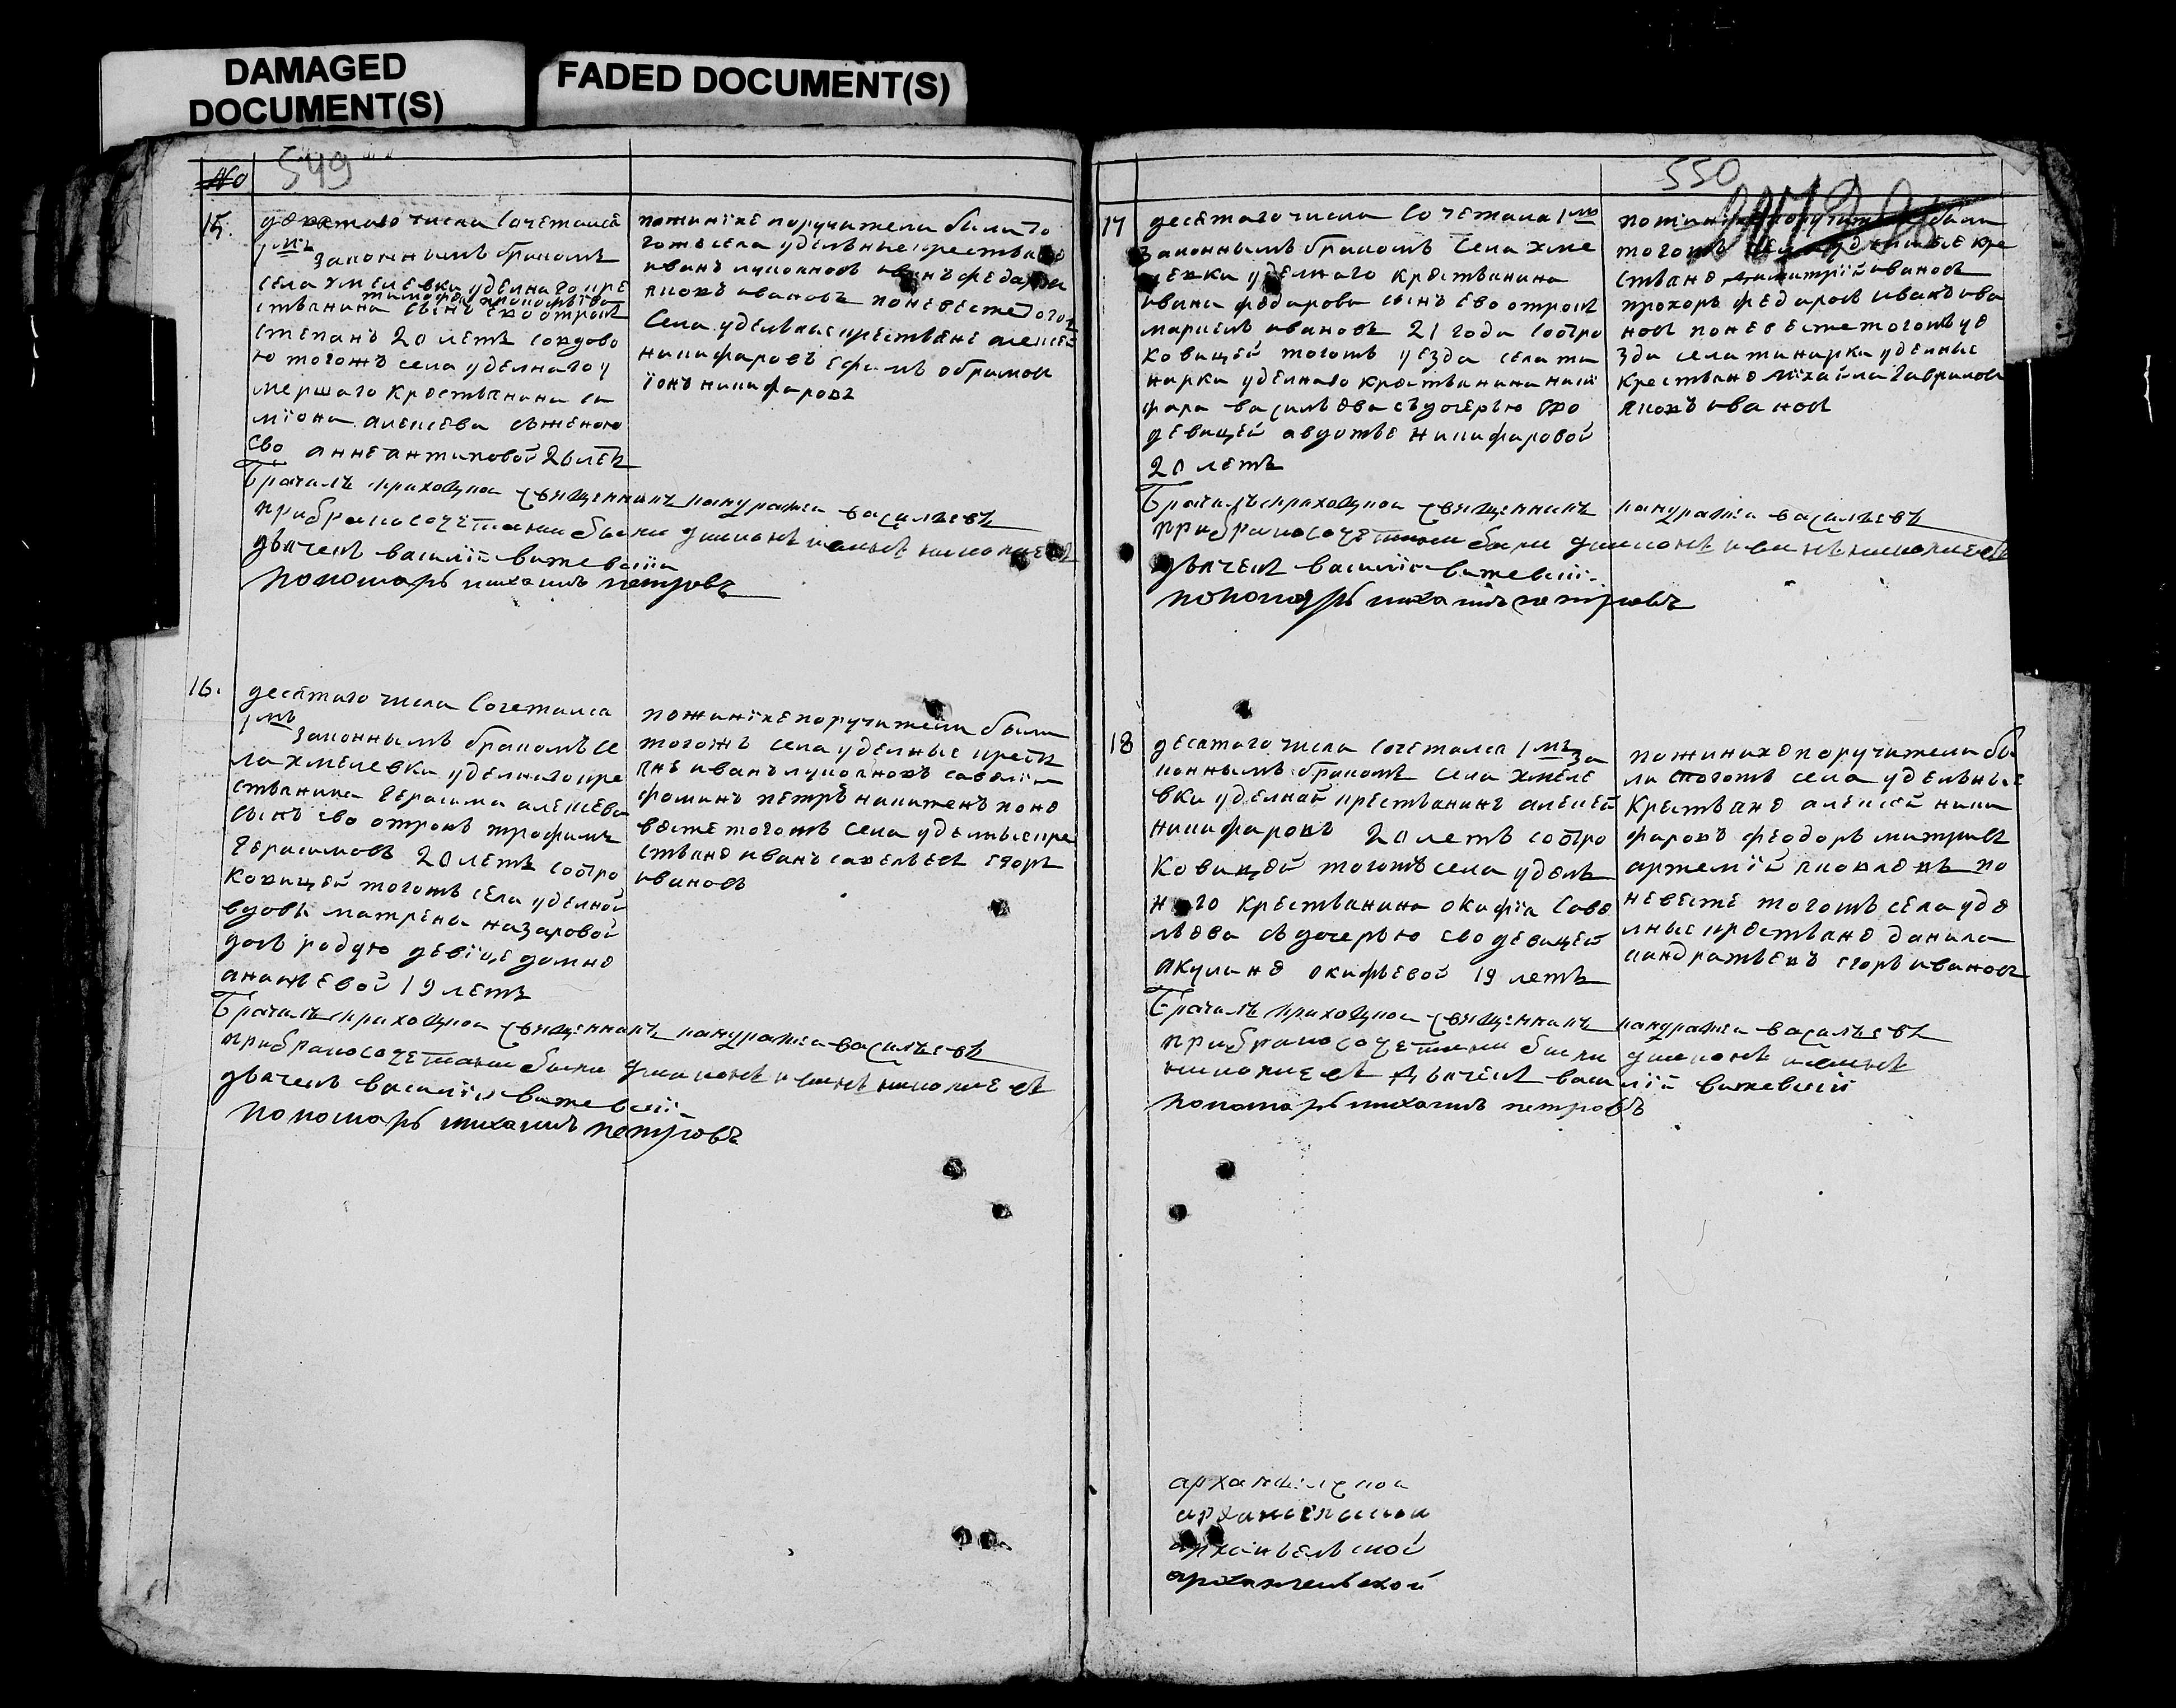 DAMAGED
DOCUMENT(S)
FADED DOCUMENT(S)
№
549
15.
десятаго числа сочетался
1мъ законнымъ бракомъ
села хмелевка уделнаго кре
стьянина тимофея прокофьева сынъ ево отрокъ
степанъ 20 летъ совдово
ю тогожъ села уделнаго у
мершаго крестьянина си
миона алексева сженою
ево анне антиповой 26 летъ
пожинихе поручители были то
гожъ села удельные крестьяне
иванъ лукояновъ иванъ федаровъ
яковъ ивановъ поневесте тогожъ
села удельные крестьяне алексей
никифаровъ ефимъ обрамов
іонъ никифаровъ
Брачилъ приходцкои священникъ кандратеи васильевъ
прибракосочетании были диаконъ иванъ николаевъ
дьячекъ василій
пономарь михаилъ петровъ
16.
десятаго числа сочетался
1мъ законнымъ бракомъ се
ла хмелевки уделнаго кре
стьянина герасима алексева
сынъ ево отрокъ трофимъ
герасимовъ 20 летъ сотро
ковицей тогожъ села уделной
вдовы матрены назаровой
дочъ родую девице домне
ананьевой 19 летъ
пожинихе поручители были
тогожъ села уделные крестья
яне иванъ лукояновъ савелій
фоминъ петръ никитенъ поне
весте тогожъ села уделные кре
стьяне иванъ савельевъ егоръ
ивановъ
Брачилъ приходцкои священникъ кандратеи васильевъ
прибракосочетании были диаконъ иванъ николаевъ
дьячекъ василій
пономарь михаилъ петровъ
550
17
десятаго числа сочетался 1мъ
законнымъ бракомъ села хме
левки уделнаго крестьянина
ивана федарова сынъ ево отрокъ
маркелъ ивановъ 21 года сотро
ковицей тогожъ уезда села ти
нарки уделнаго крестьянина ники
фара васильева съдочерью ево
девицей авдотье никифаровой
20 летъ
пожинихе поручители были
тогожъ села уделные кре
стьяне димитрій ивановъ
прохоръ федаровъ иванъ ива
новъ поневесте тогожъ уе
зда села тинарки уделные
крестьяне михайла гавриловъ
яковъ ивановъ
Брачилъ приходцкои священникъ кандратеи васильевъ
прибракосочетании были диаконъ иванъ николаевъ
дьячекъ василій
пономарь михаилъ петровъ
18
десятаго числа сочетался 1мъ за
коннымъ бракомъ села хмеле
вки уделнай крестьянинъ алексей
никифаровъ 20 летъ сотро
ковицей тогожъ села удель
наго крестьянина окифія саве
льева съ дочерью ево девицей
акулине окифьевой 19 летъ
пожинихе поручители бы
ли тогожъ села удельные
крестьяне алексей ники
фаровъ феодоръ митривъ
артемій яковлевъ по
невесте тогожъ села уде
лные крестьяне данила
кандратьевъ егоръ ивановъ
Брачилъ приходцкои священникъ кандратеи васильевъ
прибракосочетании были диаконъ иванъ
николаевъ дьячекъ василій
пономарь михаилъ петровъ
архангельской
архангельской